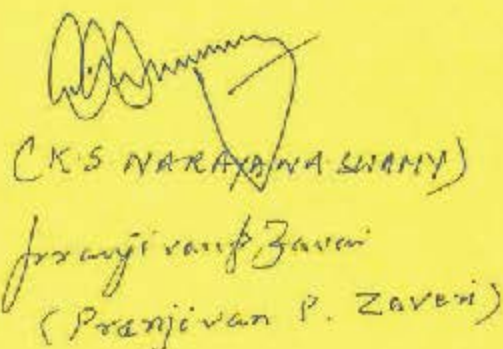 (K.S NARAYANA SWAMY)
Pranjivan P Zaveri
(Pranjivan P. Zaveri)